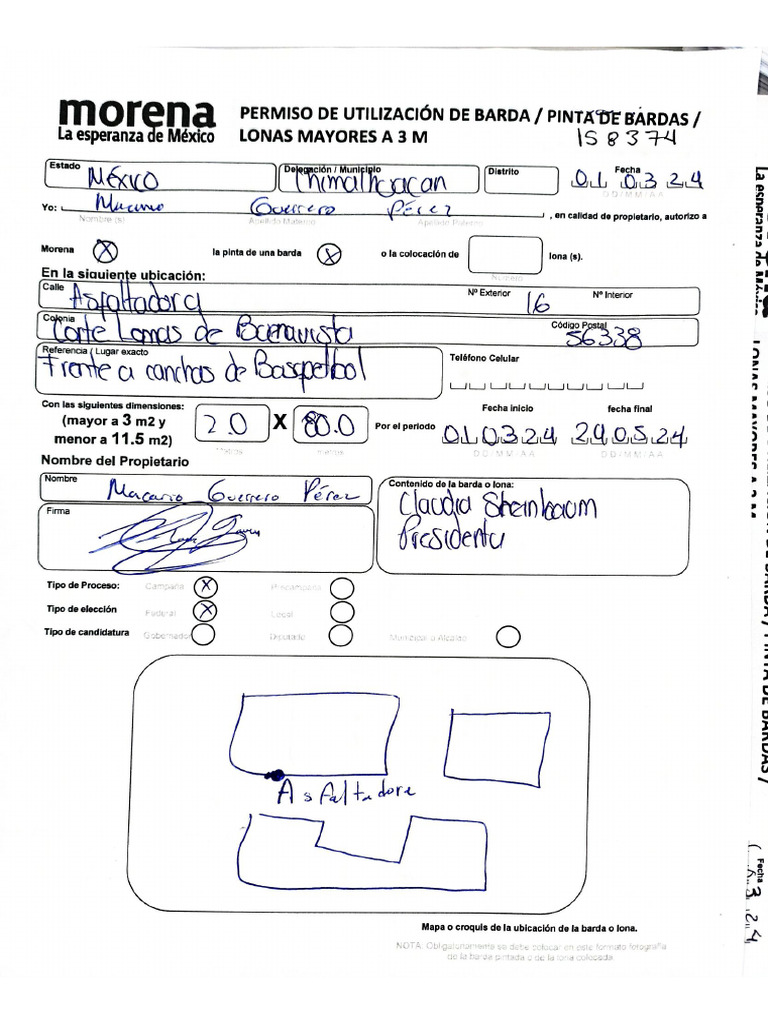 morena
La esperanza de México
PERMISO DE UTILIZACIÓN DE BARDA / PINTA DE BARDAS /
LONAS MAYORES A 3 M
158374
Estado MÉXICO
Delegación / Municipio Chimalhuacan
Distrito
Fecha 01 03 24
DD/MM/AA
Yo: Macario Guerrero Pérez , en calidad de propietario, autorizo a
Nombre (s) Apellido Materno Apellido Paterno
Morena X la pinta de una barda X o la colocación de lona (s).
Número
En la siguiente ubicación:
Calle Asfaltadora Nº Exterior 16 Nº Interior
Colonia Corte Lomas de Buenavista Código Postal 56338
Referencia / Lugar exacto
Frente a canchas de Basquetbol
Teléfono Celular
Con las siguientes dimensiones:
(mayor a 3 m2 y
menor a 11.5 m2)
2.0 X 80.0
Metros metros
Por el periodo
Fecha inicio fecha final
01 03 24 29 05 24
DD/MM/AA DD/MM/AA
Nombre del Propietario
Nombre Macario Guerrero Pérez
Firma
Contenido de la barda o lona:
Claudia Sheinbaum
Presidenta
Tipo de Proceso: Campaña X Precampaña
Tipo de elección Federal X Local
Tipo de candidatura Gobernador Diputado Municipal o Alcalde
Asfaltadora
Mapa o croquis de la ubicación de la barda o lona.
NOTA: Obligatoriamente se debe colocar en este formato fotografía
de la barda pintada o de la lona colocada.
La esperanza de México
LONAS MAYORES A 3 M
Fecha